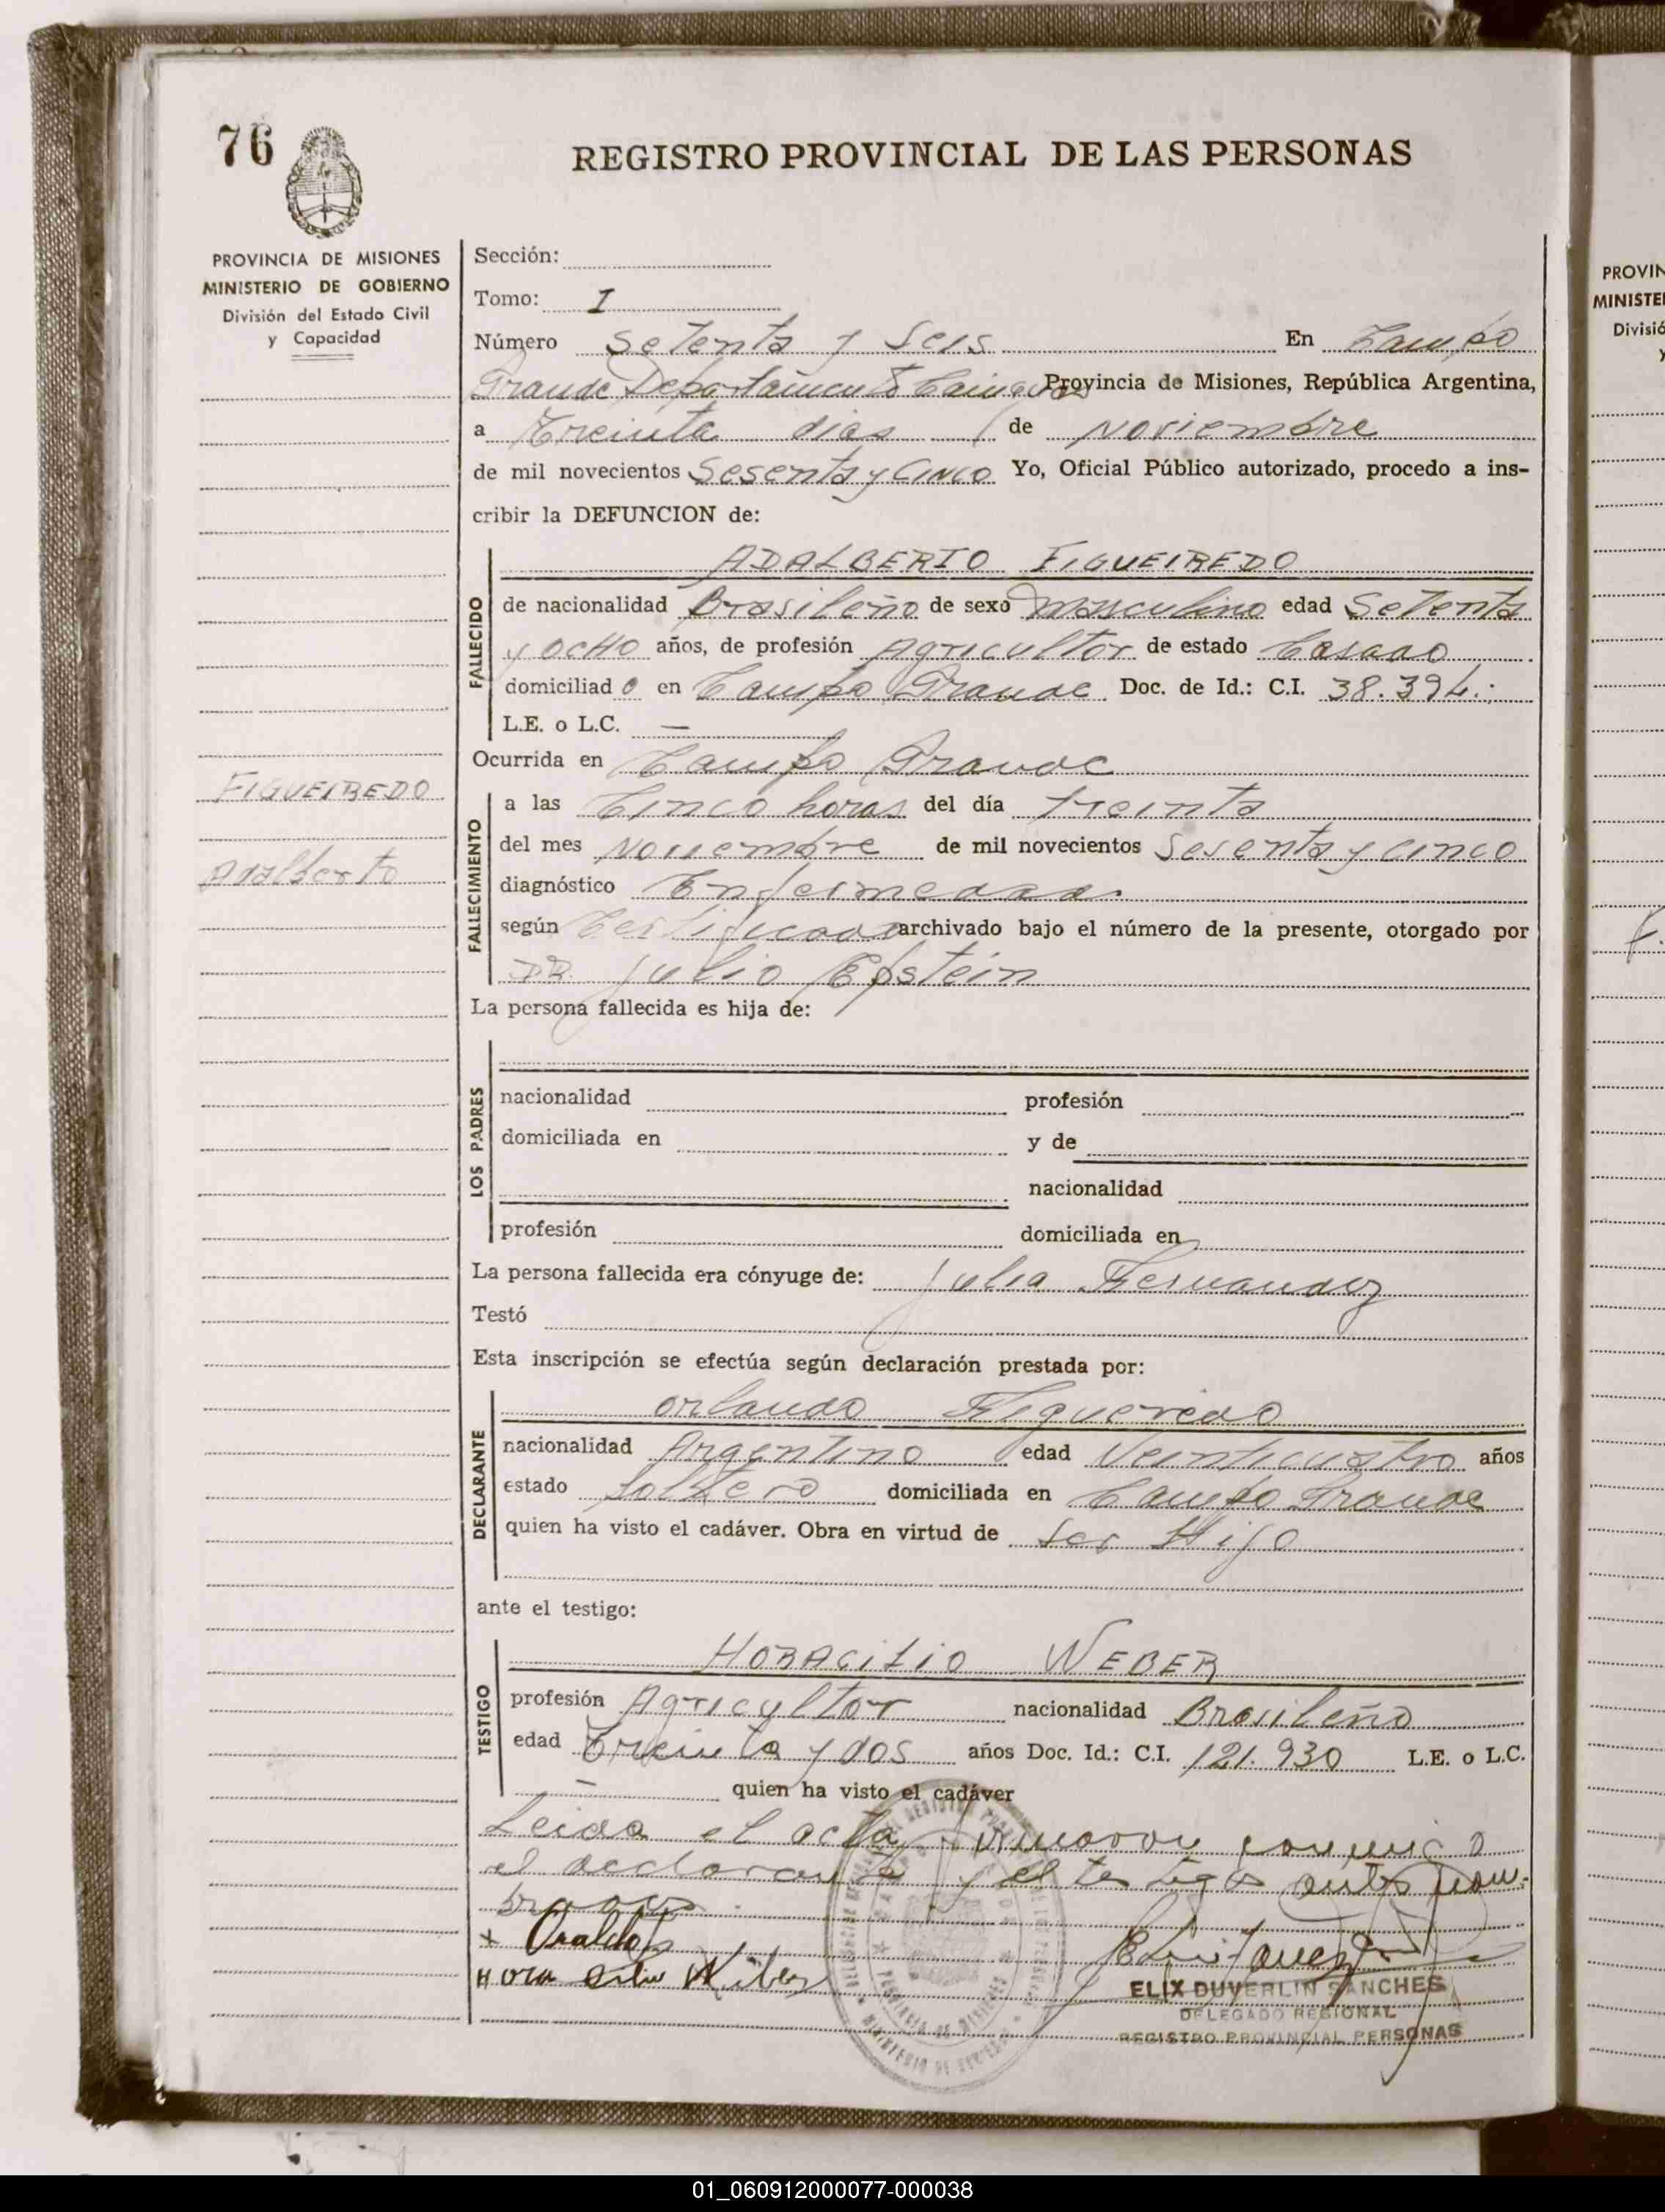 76
REGISTRO PROVINCIAL DE LAS PERSONAS
PROVINCIA DE MISIONES
MINISTERIO DE GOBIERNO
División del Estado Civil
y Capacidad
Sección:
Tomo: I
Número Setenta y Seis En Campo
Grande Departamento Cainguas Provincia de Misiones, República Argentina,
a Treinta dias de Noviembre
de mil novecientos Sesenta y Cinco Yo, Oficial Público autorizado, procedo a ins-
cribir la DEFUNCION de:
FALLECIDO
ADALBERTO FIGUEIREDO
de nacionalidad Brasileño de sexo Masculino edad Setenta
y OCHO años, de profesión Agricultor de estado Casado
domiciliado en Campo Grande Doc. de Id.: C.I. 38.394.-
L.E. o L.C. —
Ocurrida en Campo Grande
FIGUEIREDO
Adalberto
FALLECIMIENTO
a las Cinco horas del día treinta
del mes Noviembre de mil novecientos Sesenta y Cinco
diagnóstico Enfermedad.
según Certificado archivado bajo el número de la presente, otorgado por
DR. Julio Epstein
La persona fallecida es hija de:
LOS PADRES
nacionalidad profesión
domiciliada en y de
nacionalidad
profesión domiciliada en
La persona fallecida era cónyuge de: Julia Fernandez
Testó
Esta inscripción se efectúa según declaración prestada por:
DECLARANTE
Orlando Figueredo
nacionalidad Argentino edad Veinticuatro años
estado Soltero domiciliada en Campo Grande
quien ha visto el cadáver. Obra en virtud de Ser Hijo
ante el testigo:
TESTIGO
HORACILIO WEBER
profesión Agricultor nacionalidad Brasileño
edad Treinta y dos años Doc. Id.: C.I. 121.930 L.E. o L.C.
— quien ha visto el cadáver
Leida el acta, firmaron conmigo
el declarante y el testigo antes nom-
brados
ELIX DUVERLIN SANCHES
DELEGADO REGIONAL
REGISTRO PROVINCIAL PERSONAS
PROVIN
MINISTE
Divisió
y
01_060912000077-000038